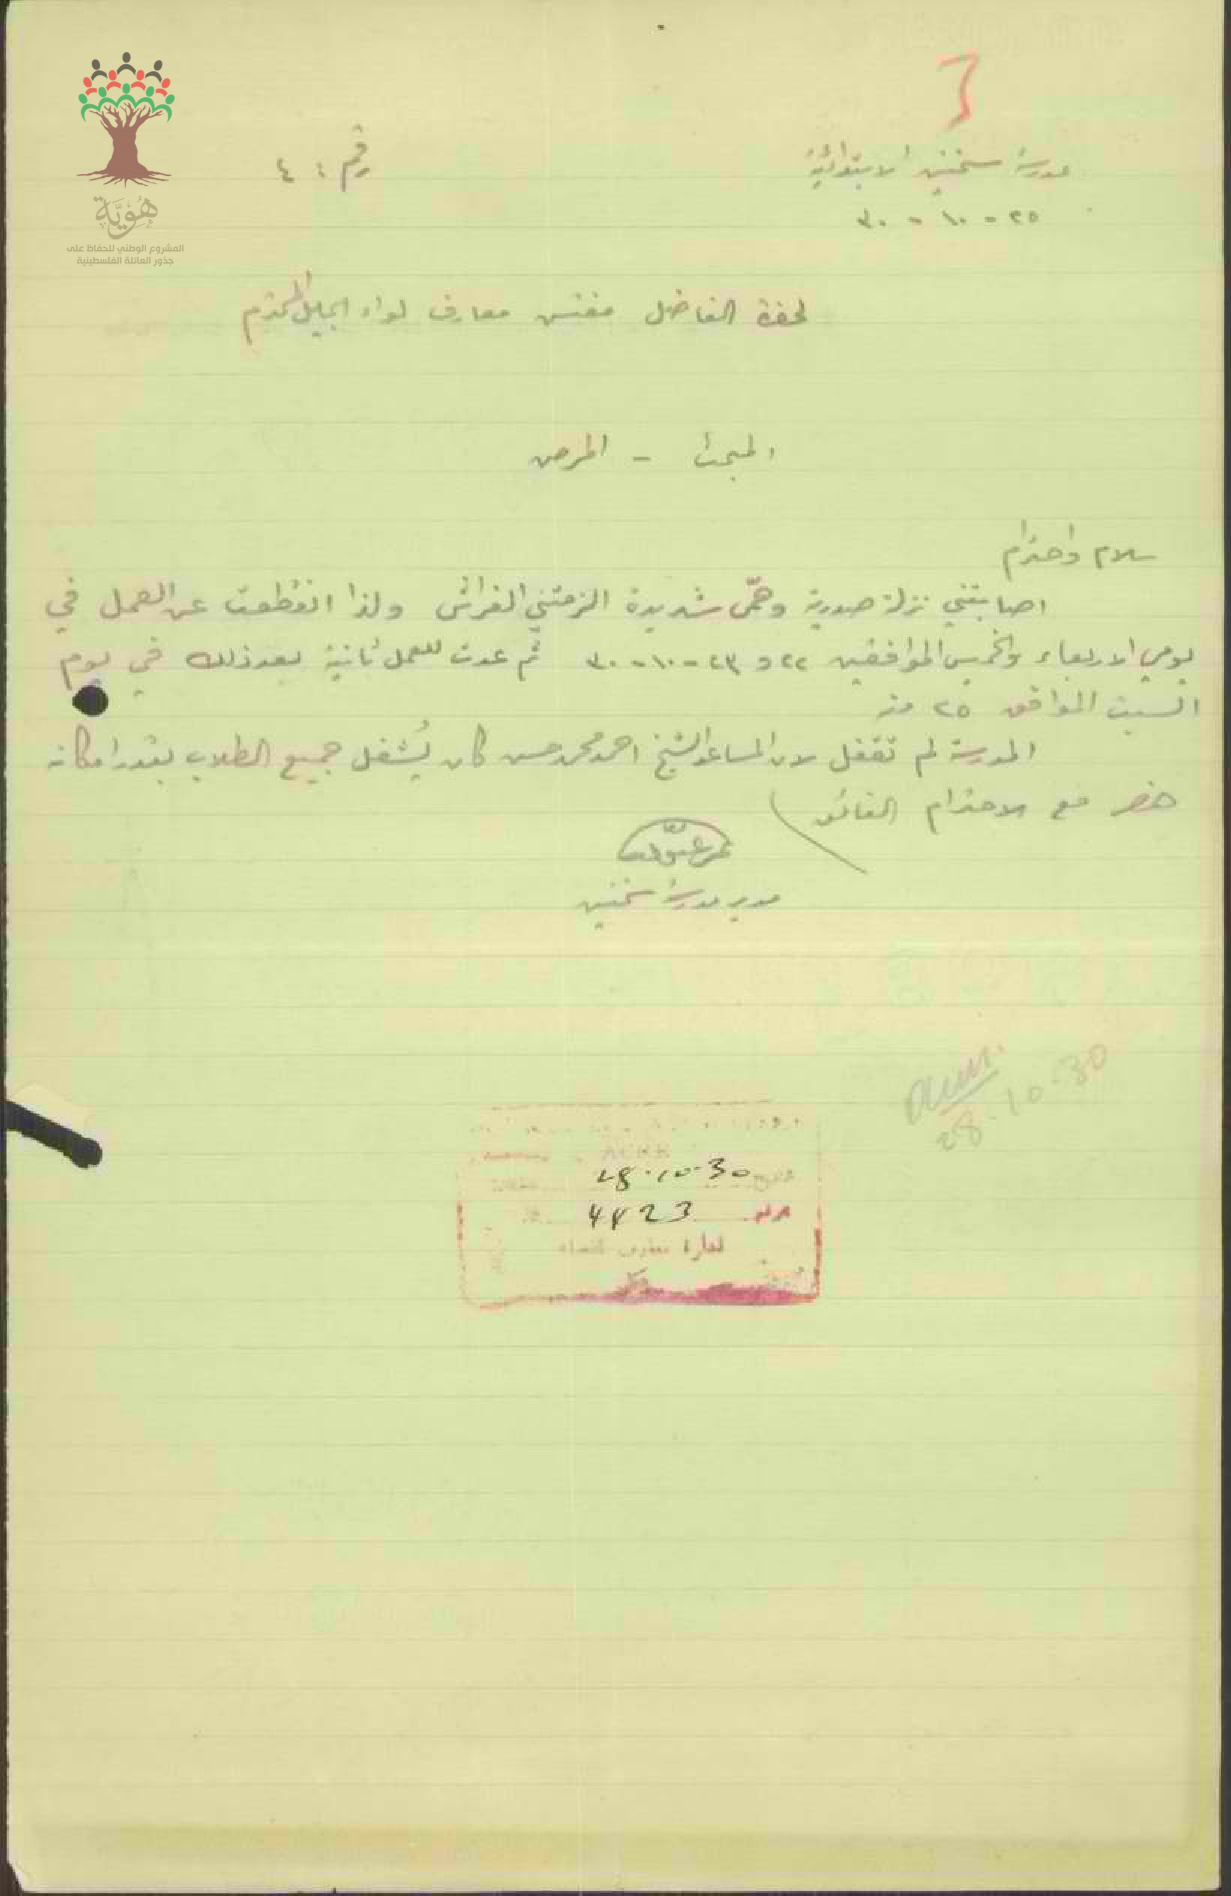 هُوِيَّة
المشروع الوطني للحفاظ على
جذور العائلة الفلسطينية
مدرسة سخنين الابتدائية
رقم : ٤
٢٥ - ١٠ - ٣٠
لحضرة الفاضل مفتش معارف لواء الجليل المحترم
المبحث - المرض
سلام واحترام
اصابتني نزلة صدرية وحمّى شديدة الزمتني الفراش ولذا انقطعت عن العمل في
يومي الاربعاء والخميس الموافقين ٢٢ و ٢٣ - ١٠ - ٣٠ ثم عدت للعمل ثانية بعد ذلك في يوم
السبت الموافق ٢٥ منه
المدرسة لم تقفل لان المساعد الشيخ احمد محمد حسن كان يُشغل جميع الطلاب بقدر امكانه
هذا مع الاحترام الفائق
مدير مدرسة سخنين
28.10.30
ACRE
28.10.30
4423